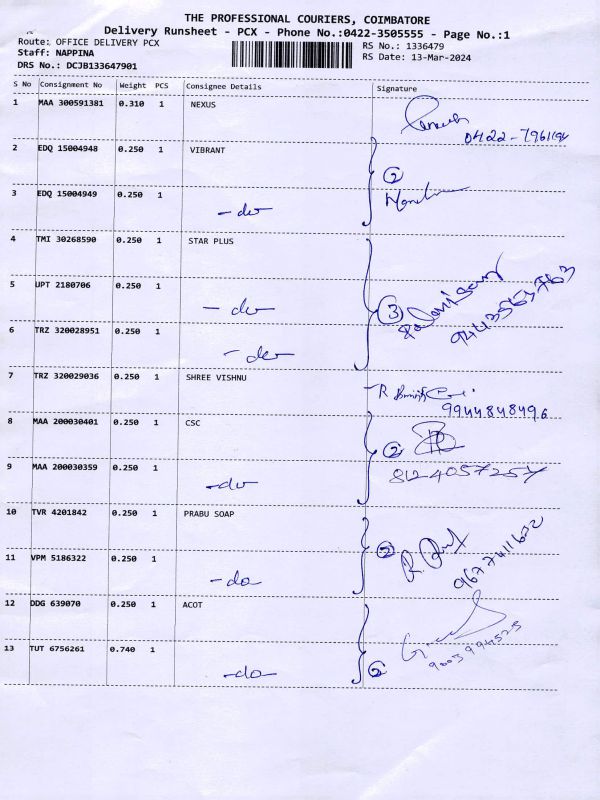 THE PROFESSIONAL COURIERS, COIMBATORE
Delivery Runsheet - PCX - Phone No.:0422-3505555 - Page No.:1
Route: OFFICE DELIVERY PCX
RS No.: 1336479
Staff: NAPPINA
RS Date: 13-Mar-2024
DRS No.: DCJB133647901
S No Consignment No Weight PCS Consignee Details Signature
1 MAA 300591381 0.310 1 NEXUS
2 EDQ 15004948 0.250 1 VIBRANT
2
3 EDQ 15004949 0.250 1
-do-
4 TMI 30268590 0.250 1 STAR PLUS
5 UPT 2180706 0.250 1
-do-
3
6 TRZ 320028951 0.250 1
-do-
7 TRZ 320029036 0.250 1 SHREE VISHNU
9944848496
8 MAA 200030401 0.250 1 CSC
2
9 MAA 200030359 0.250 1
8124057257
-do-
10 TVR 4201842 0.250 1 PRABU SOAP
2
11 VPM 5186322 0.250 1
9677411672
-do-
12 DDG 639070 0.250 1 ACOT
9003994525
13 TUT 6756261 0.740 1
-do-
2